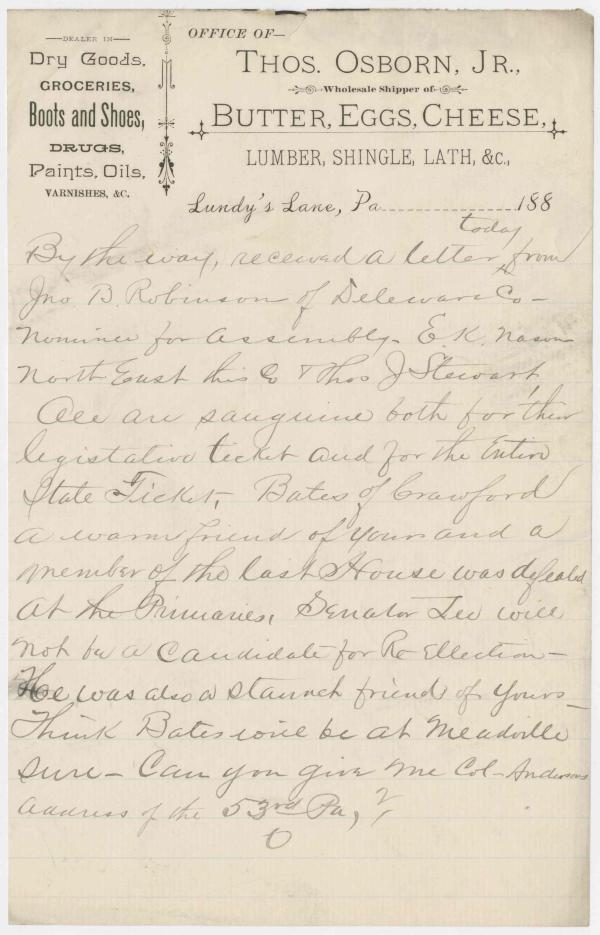 DEALER IN
Dry Goods,
GROCERIES,
Boots and Shoes,
DRUGS,
Paints, Oils,
VARNISHES, &C.
OFFICE OF
THOS. OSBORN, JR.,
Wholesale Shipper of
BUTTER, EGGS, CHEESE,
LUMBER, SHINGLE, LATH, &c.,
Lundy's Lane, Pa. 188
today
By the way, received a letter from
Jno B. Robinson of Deleware Co -
nominee for Assembly. E. K. Nason
North East this Co & Thos J Stewart,
All are sanguine both for their
legistative ticket and for the Entire
State Ticket, Bates of Crawford
a warm friend of yours and a
member of the last House was defeated
at the Primaries, Senator Lee will
not be a candidate for Re Ellection -
He was also a staunch friend of yours -
Think Bates will be at Meadville
sure - Can you give me Col - Andersons
address of the 53rd Pa, ?
O